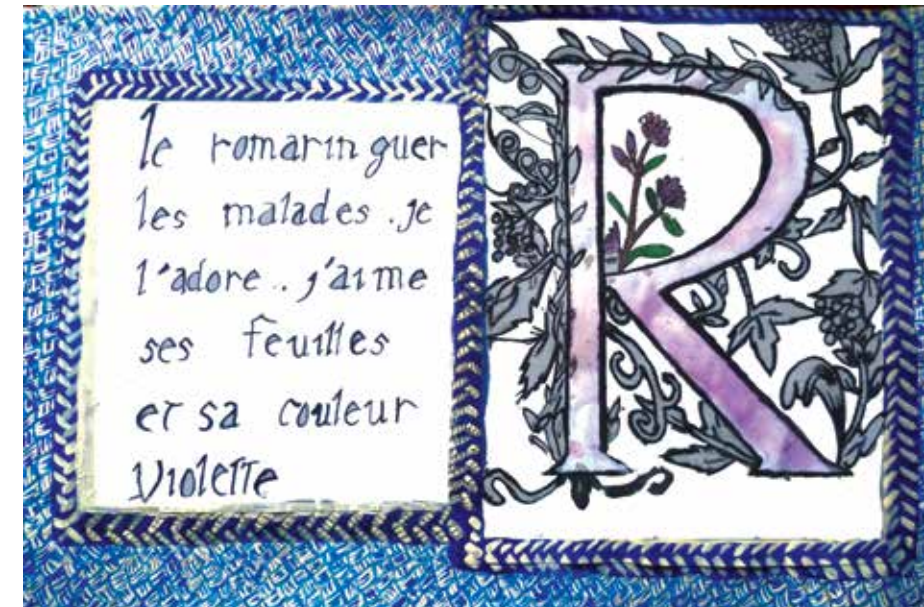 le romarin guer
les malades . je
l'adore . j'aime
ses feuilles
et sa couleur
violette
R